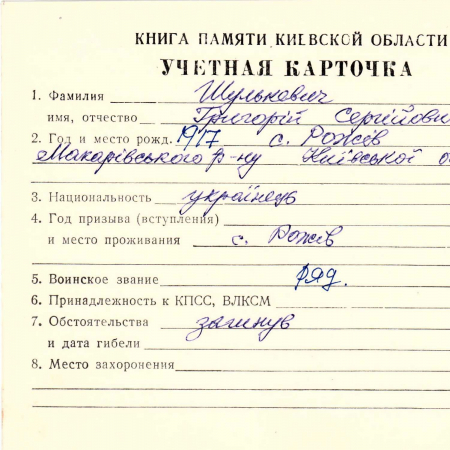 КНИГА ПАМЯТИ КИЕВСКОЙ ОБЛАСТИ
УЧЕТНАЯ КАРТОЧКА
1. Фамилия Шулькевич
имя, отчество Григорій Сергійови
2. Год и место рожд. 1917 с. Рожів
Макарівського р-ну Київської о
3. Национальность українець
4. Год призыва (вступления)
и место проживания с. Рожів
5. Воинское звание ряд.
6. Принадлежность к КПСС, ВЛКСМ
7. Обстоятельства загинув
и дата гибели
8. Место захоронения